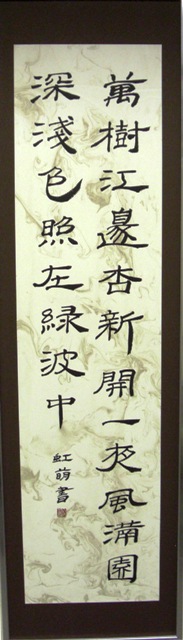 萬樹江邊杏新開一夜風滿園
深淺色照在綠波中
虹萌書